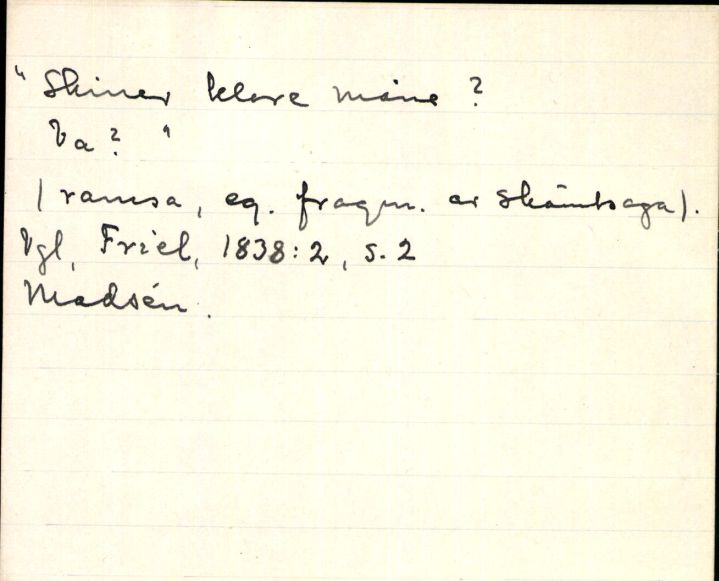 "Skiner klare måne?
Va?"
(ramsa, eg. fragm. av skämtsaga).
Vgl, Friel, 1838:2, s. 2
Madsén.